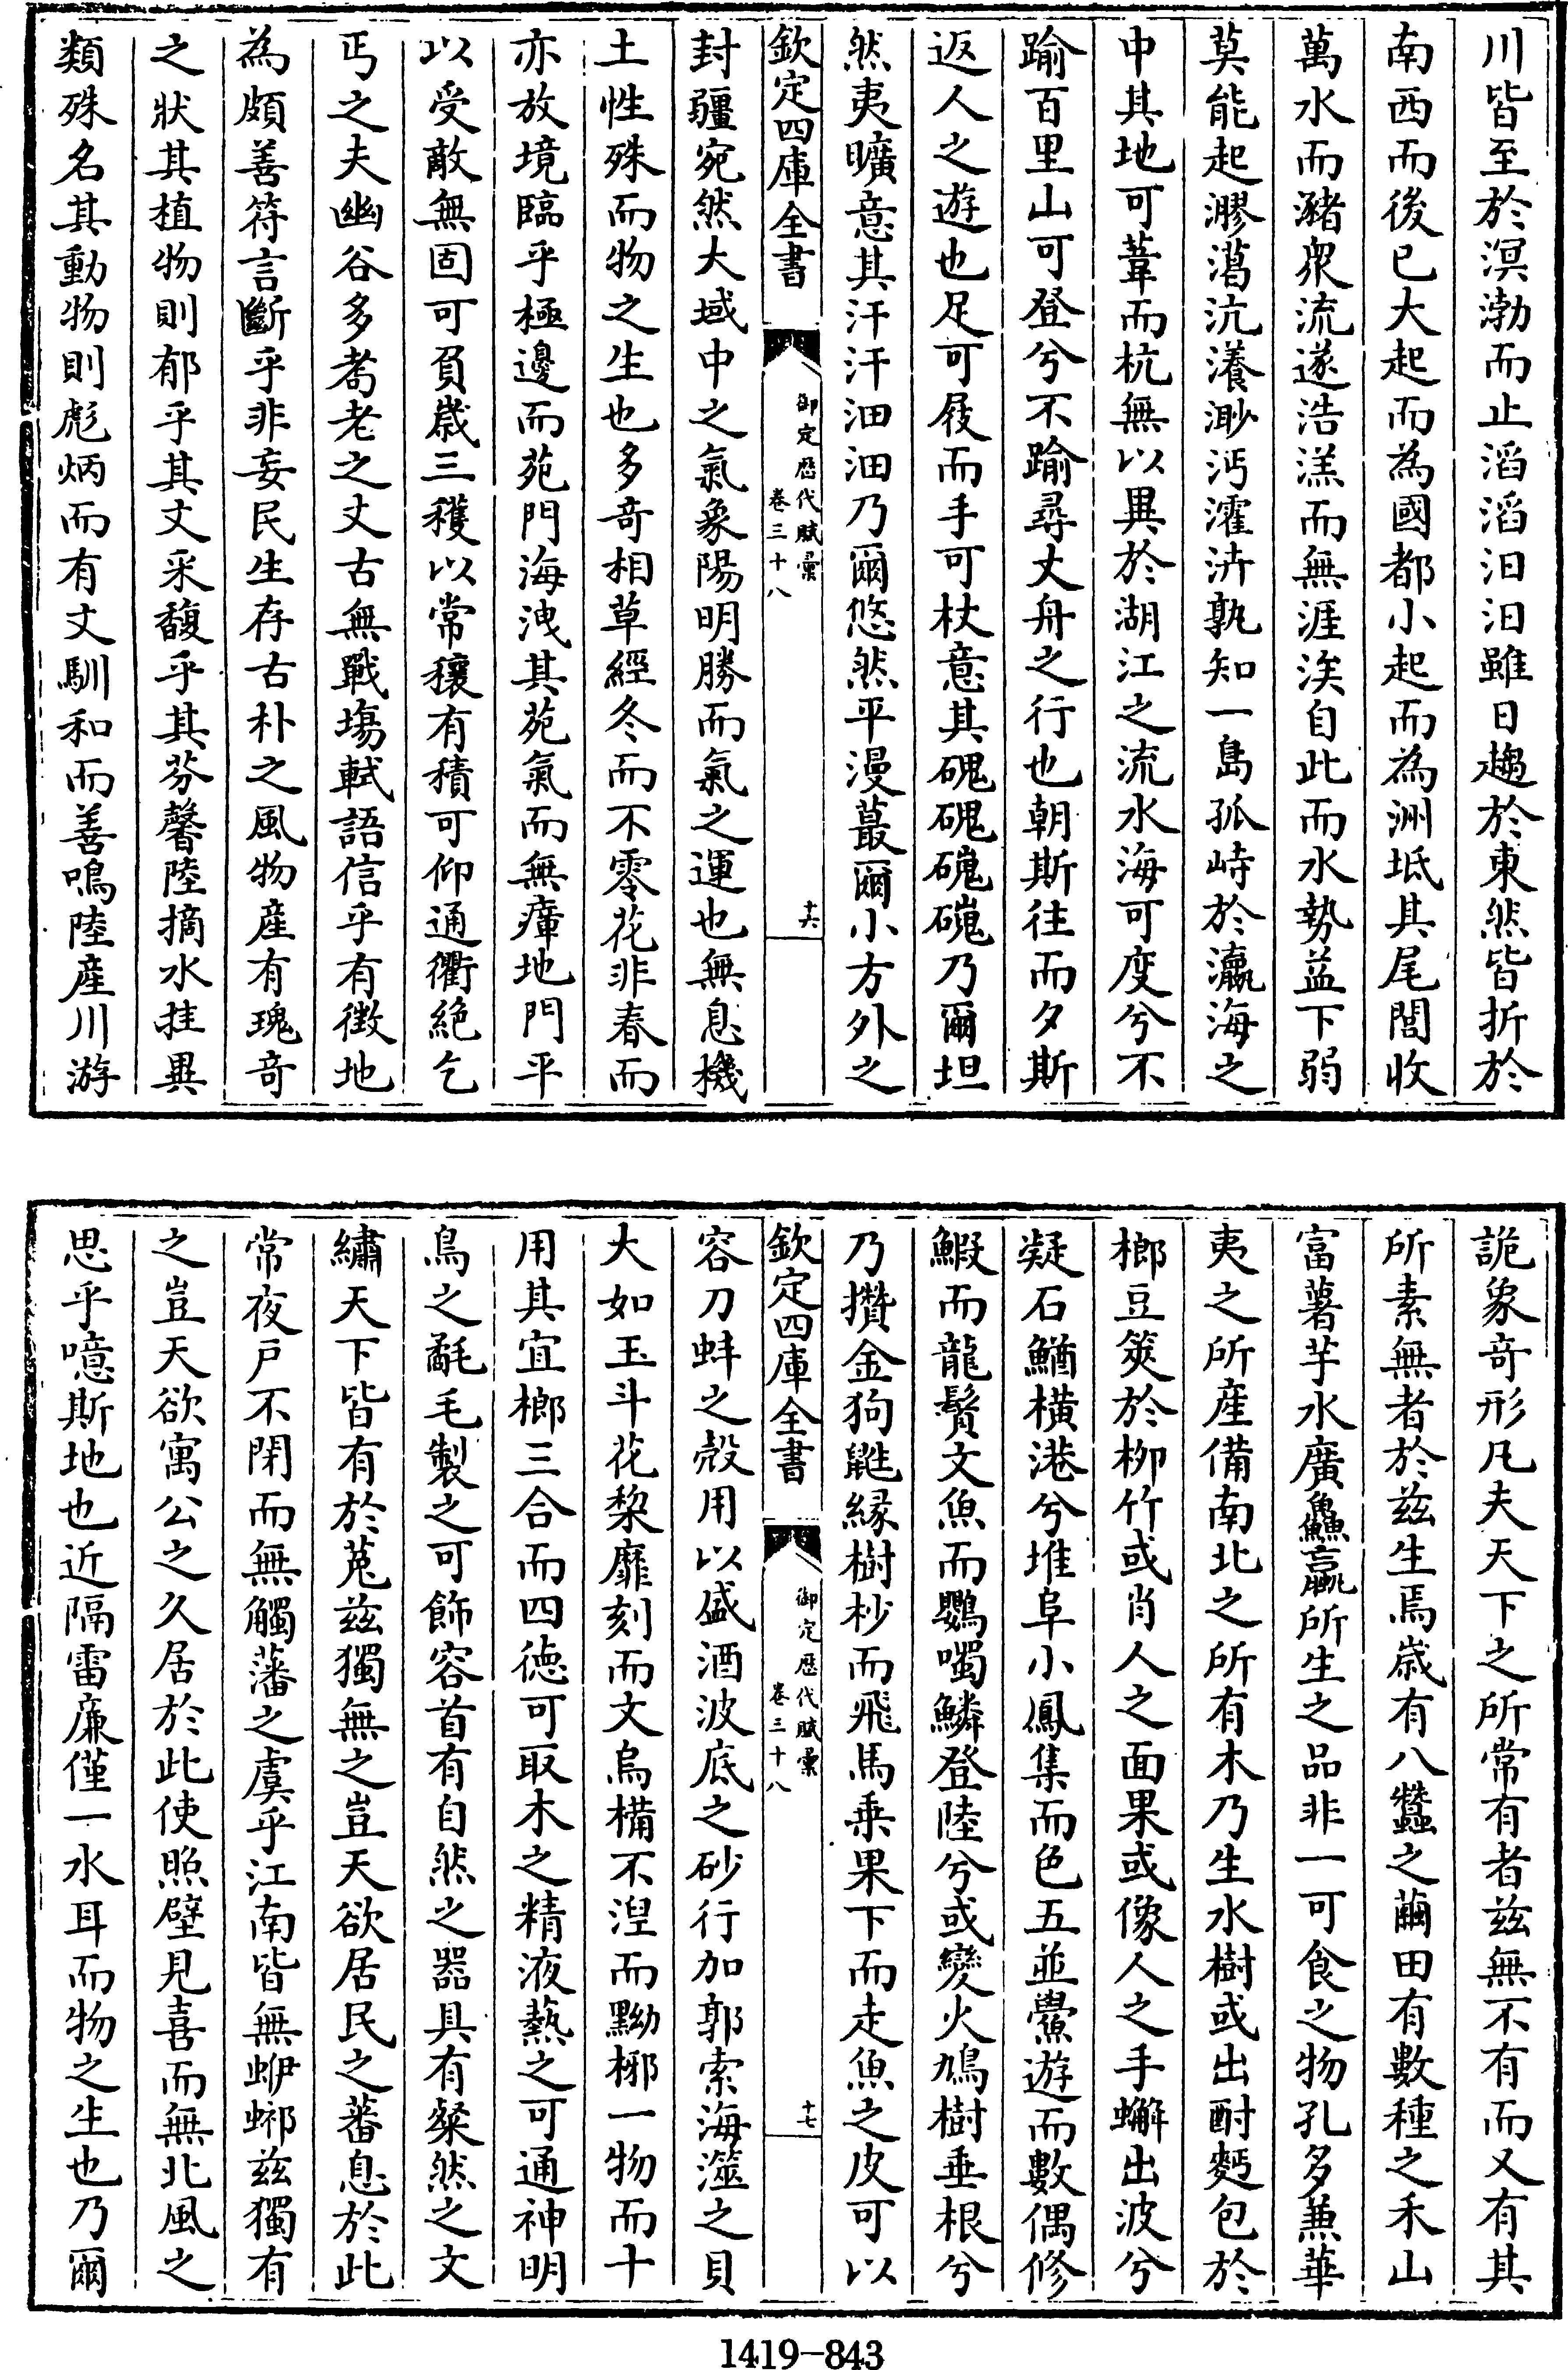 川皆至於溟渤而止滔滔汨汨雖日趨於東然皆折於
南西而後已大起而為國都小起而為洲坻其尾閭收
萬水而瀦衆流遂浩渼而無涯涘自此而水勢益下弱
莫能起漻澫沆瀁渺沔瀖泋孰知一島孤峙於瀛海之
中其地可葦而杭無以異於湖江之流水海可度兮不
踰百里山可登兮不踰尋丈舟之行也朝斯往而夕斯
返人之遊也足可屐而手可杖意其磈磈磑磑乃爾坦
然夷曠意其汗汗沺沺乃爾悠然平漫蕞爾小方外之
欽定四庫全書
御定歷代賦彙
卷三十八
十六
封疆宛然大域中之氣象陽明勝而氣之運也無息機
土性殊而物之生也多奇相草經冬而不零花非春而
亦放境臨乎極邊而苑門海洩其苑氣而無瘴地門平
以受敵無固可負歲三穫以常穰有積可仰通衢絕乞
丐之夫幽谷多耇老之丈古無戰塲軾語信乎有徵地
為頗善符言斷乎非妄民生存古朴之風物産有瑰奇
之狀其植物則郁乎其文采馥乎其芬馨陸摘水挂異
類殊名其動物則彪炳而有文馴和而善鳴陸産川游
詭象奇形凡夫天下之所常有者兹無不有而又有其
所素無者於兹生焉歲有八蠶之繭田有數種之禾山
富薯芋水廣鱻蠃所生之品非一可食之物孔多兼華
夷之所産備南北之所有木乃生水樹或出酎麪包於
榔豆筴於柳竹或肖人之面果或像人之手蠏出波兮
凝石鰌橫港兮堆阜小鳳集而色五並鱟遊而數偶修
鰕而龍鬢文魚而鸚嘴鱗登陸兮或變火鳩樹垂根兮
乃攢金狗鼪緣樹杪而飛馬乗果下而走魚之皮可以
欽定四庫全書
御定歷代賦彙
卷三十八
十七
容刀蚌之殻用以盛酒波底之砂行加郭索海澨之貝
大如玉斗花棃靡刻而文烏構不湼而黝椰一物而十
用其宜榔三合而四德可取木之精液爇之可通神明
鳥之氄毛製之可飾容首有自然之器具有粲然之文
繡天下皆有於菟兹獨無之豈天欲居民之蕃息於此
常夜户不閉而無觸藩之虞乎江南皆無蛜蜋兹獨有
之豈天欲寓公之久居於此使照壁見喜而無北風之
思乎噫斯地也近隔雷廉僅一水耳而物之生也乃爾
1419-843